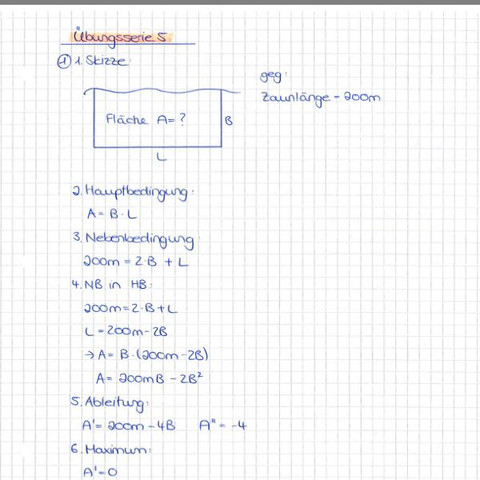 Übungsserie 5
① 1. Skizze:
geg:
Zaunlänge = 200m
Fläche A= ?
B
L
2. Hauptbedingung:
A= B·L
3. Nebenbedingung:
200m = 2·B + L
4. NB in HB:
200m = 2·B+L
L = 200m - 2B
→ A= B·(200m - 2B)
A= 200mB - 2B²
5. Ableitung:
A'= 200m - 4B A" = -4
6. Maximum:
A'=0